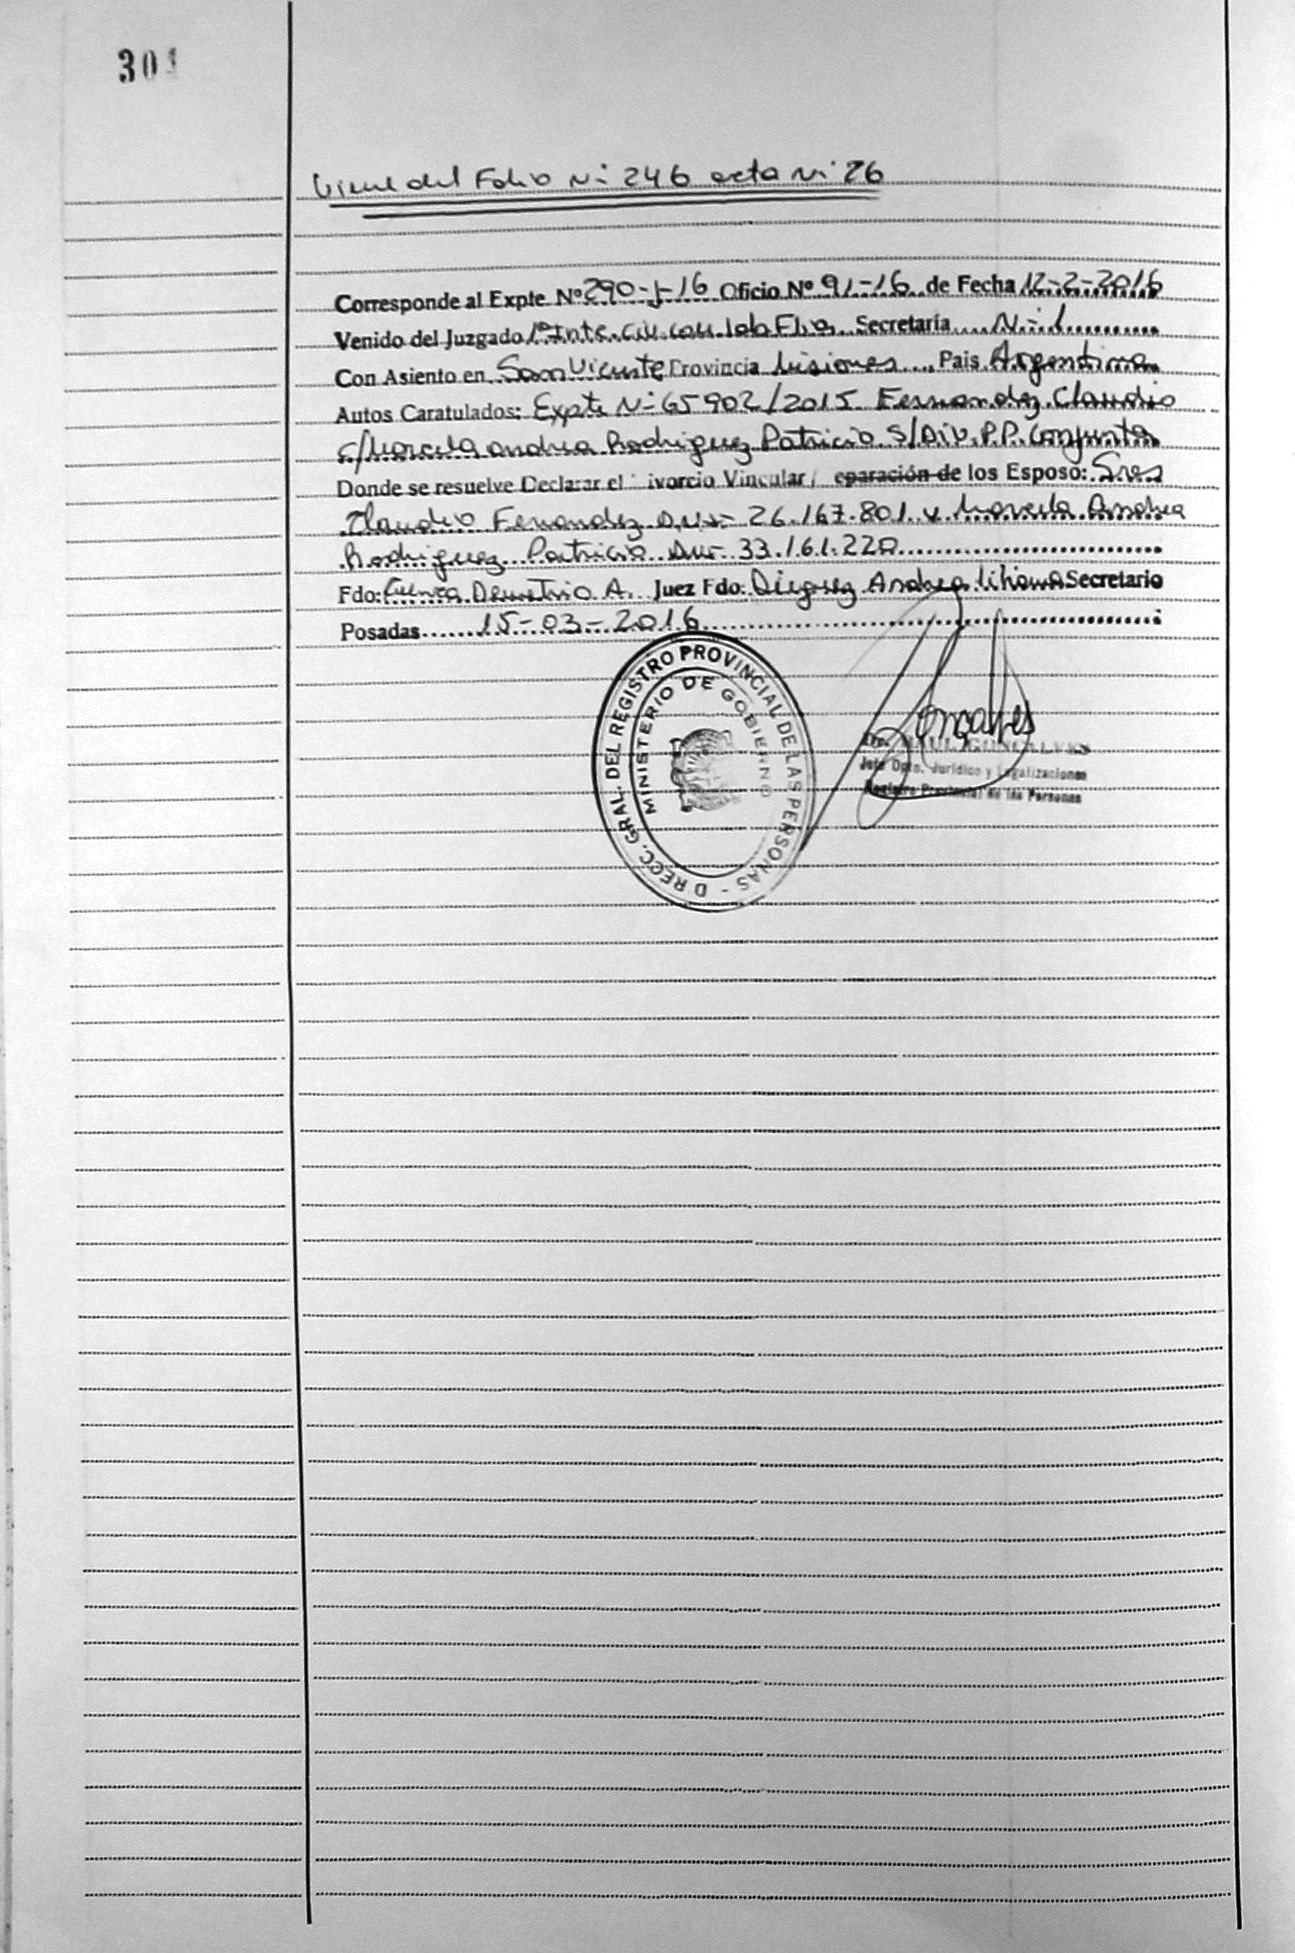 301
Viene del Folio Nº 246 acta Nº 26
Corresponde al Expte Nº 290-J-16 Oficio Nº 91-16 de Fecha 12-2-2016
Venido del Juzgado 1º Inte. Civ. Com. Lab. Flia. Secretaría Nº 1
Con Asiento en San Vicente Provincia Misiones País Argentina
Autos Caratulados: Expte Nº 65902/2015 Fernandez Claudio
c/Marcela Andrea Rodriguez Patricio S/Div. P.P. Conjunta
Donde se resuelve Declarar el ivorcio Vincular/ eparación de los Esposo: Sres
Claudio Fernandez DNI: 26.167.801 y Marcela Andrea
Rodriguez Patricio DNI 33.161.220
Fdo: Demetrio A. Juez Fdo: Dieguez Andrea Liliana Secretario
Posadas 15-03-2016
D RECC. GRAL. DEL REGISTRO PROVINCIAL DE LAS PERSONAS -
MINISTERIO DE GOBIERNO
Goncalves
RAUL GONCALVES
Jefe Dpto. Jurídico y Legalizaciones
Registro Provincial de las Personas